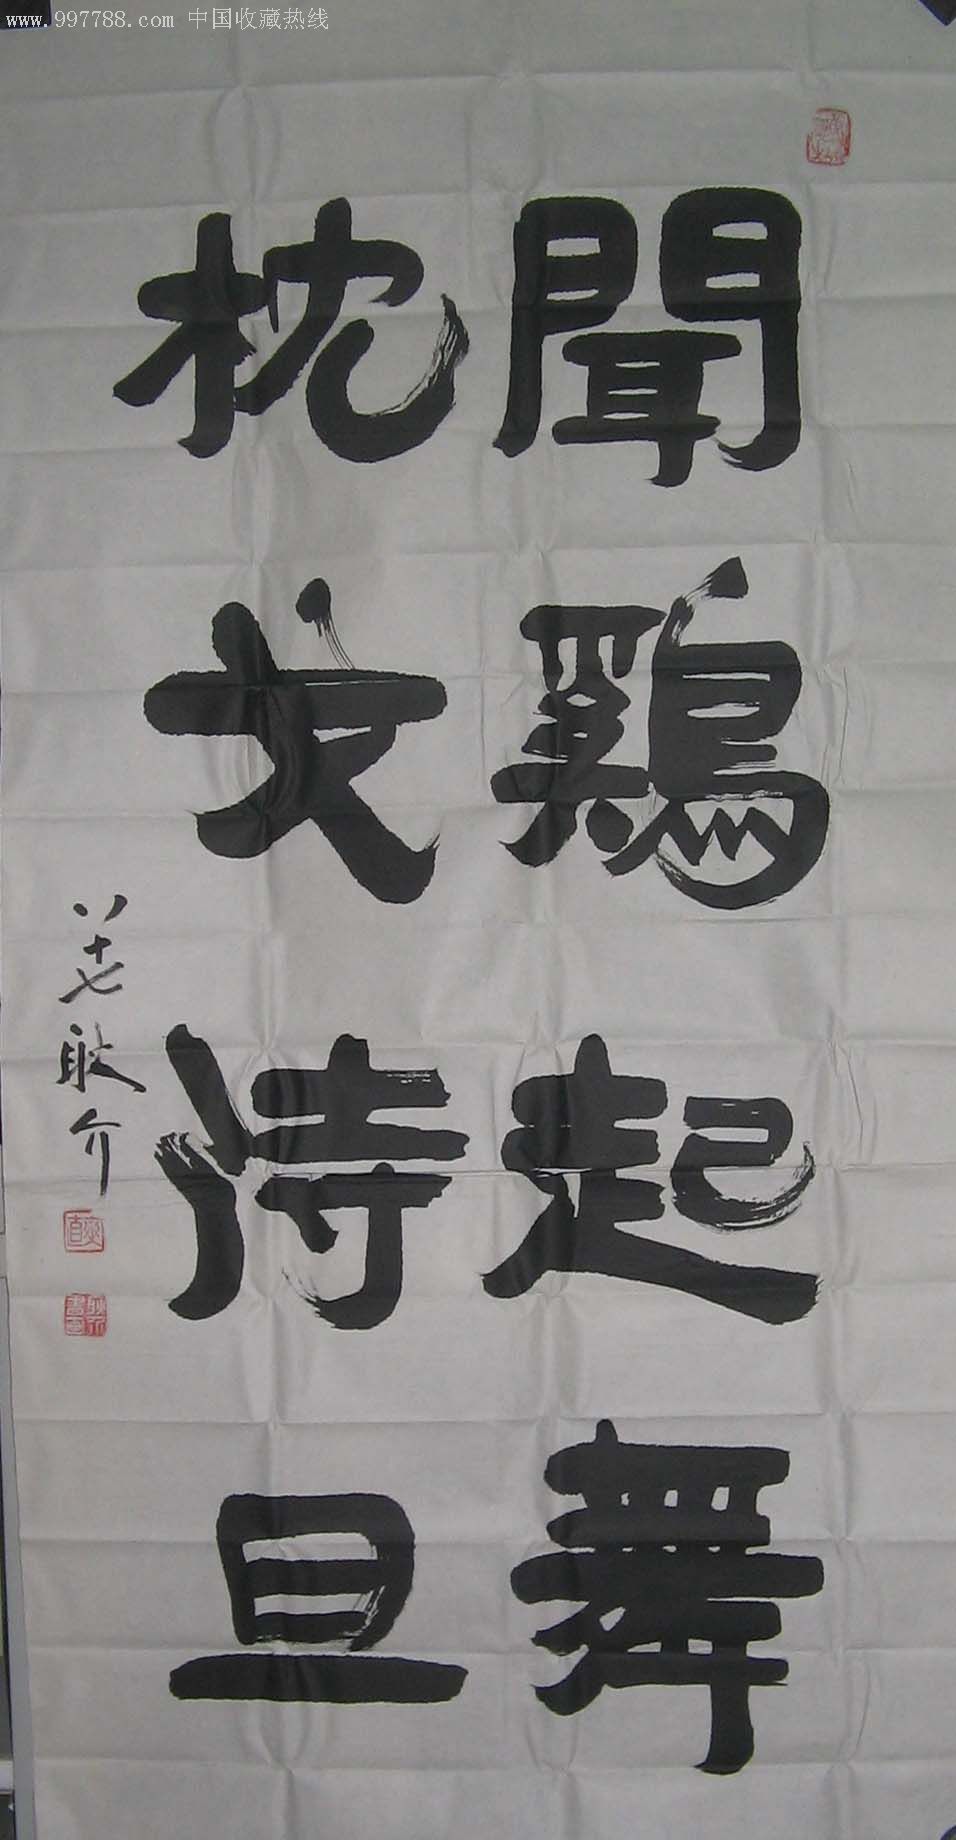 www.997788.com 中国收藏热线
聞鷄起舞
枕戈待旦
八十七耿介